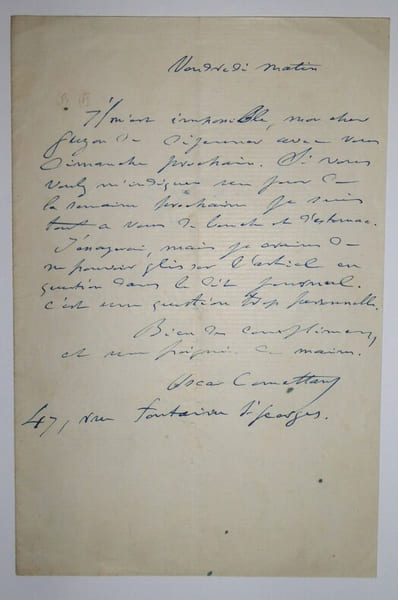 Vendredi matin
Il m'est impossible, mon cher
de déjeuner avec vous
Dimanche prochain. Si vous
voulez m'indiquer un jour de
la semaine prochaine je suis
tout à vous de bouche et d'estomac.
J'essayerai, mais je crains de
ne pouvoir glisser l'article en
question dans le dit journal.
c'est une question trop personnelle.
Bien de compliments,
et une poignée de mains.
Oscar Comettant
47, rue Fontaine St Georges.